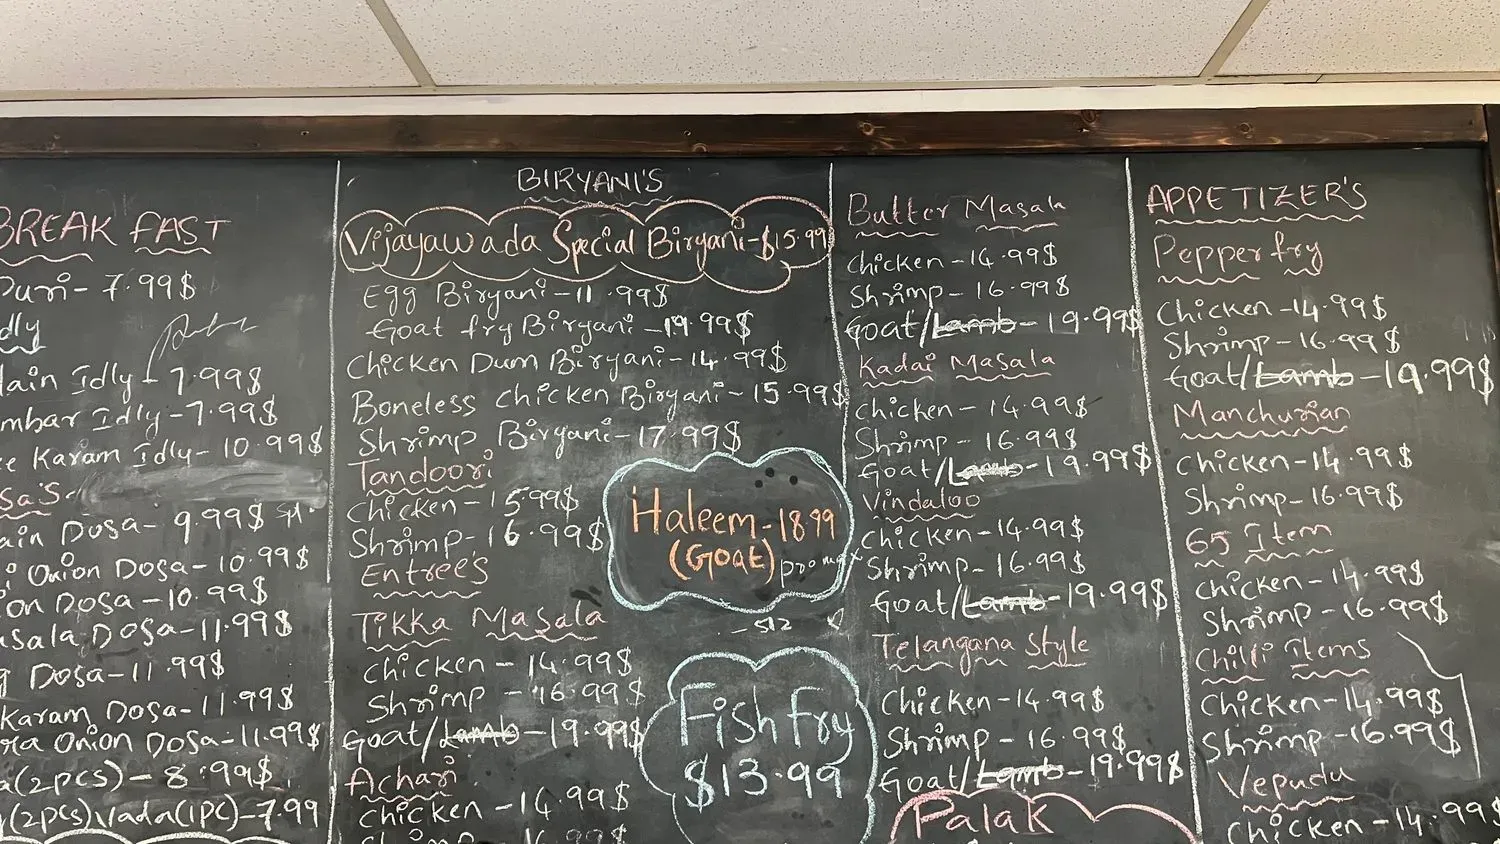 BREAK FAST
Puri - 7.99$
dly
lain Idly - 7.99$
mbar Idly - 7.99$
ee Karam Idly - 10.99$
sa's
ain Dosa - 9.99$
Onion Dosa - 10.99$
ion Dosa - 10.99$
asala Dosa - 11.99$
g Dosa - 11.99$
karam Dosa - 11.99$
ra Onion Dosa - 11.99$
a(2pcs) - 8.99$
(2pcs) Vada(1pc) - 7.99
BIRYANI'S
Vijayawada Special Biryani - $15.99
Egg Biryani - 11.99$
Goat fry Biryani - 19.99$
Chicken Dum Biryani - 14.99$
Boneless chicken Biryani - 15.99$
Shrimp Biryani - 17.99$
Tandoori
Chicken - 15.99$
Shrimp - 16.99$
Entree's
Tikka Masala
Chicken - 14.99$
Shrimp - 16.99$
Goat/Lamb - 19.99$
Achari
Chicken - 14.99$
Shrimp - 16.99$
Haleem - 18.99
(Goat)
Fish Fry
$13.99
Butter Masala
Chicken - 14.99$
Shrimp - 16.99$
Goat/Lamb - 19.99$
Kadai Masala
Chicken - 14.99$
Shrimp - 16.99$
Goat/Lamb - 19.99$
Vindaloo
Chicken - 14.99$
Shrimp - 16.99$
Goat/Lamb - 19.99$
Telangana Style
Chicken - 14.99$
Shrimp - 16.99$
Goat/Lamb - 19.99$
Palak
APPETIZER'S
Pepper fry
Chicken - 14.99$
Shrimp - 16.99$
Goat/Lamb - 19.99$
Manchurian
Chicken - 14.99$
Shrimp - 16.99$
65 Item
Chicken - 14.99$
Shrimp - 16.99$
Chilli Items
Chicken - 14.99$
Shrimp - 16.99$
Vepudu
Chicken - 14.99$